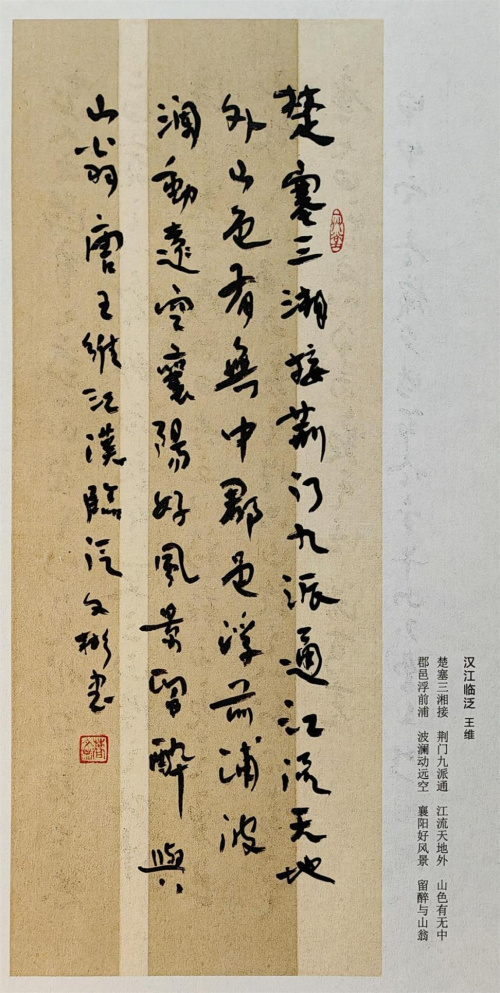 楚塞三湘接荆门九派通江流天地
外山色有無中郡邑浮前浦波
澜動遠空襄陽好風景留醉與
山翁唐王維江漢臨泛文彬書
汉江临泛 王维
楚塞三湘接 荆门九派通 江流天地外 山色有无中
郡邑浮前浦 波澜动远空 襄阳好风景 留醉与山翁